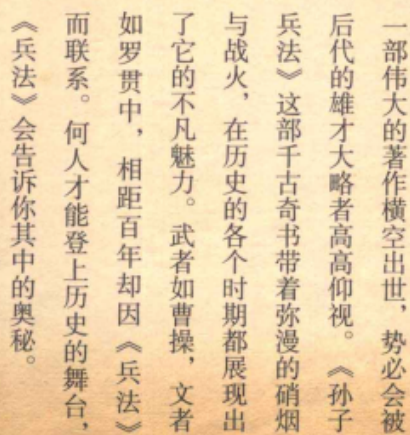 一部伟大的著作横空出世，势必会被
后代的雄才大略者高高仰视。《孙子
兵法》这部千古奇书带着弥漫的硝烟
与战火，在历史的各个时期都展现出
了它的不凡魅力。武者如曹操，文者
如罗贯中，相距百年却因《兵法》
而联系。何人才能登上历史的舞台，
《兵法》会告诉你其中的奥秘。